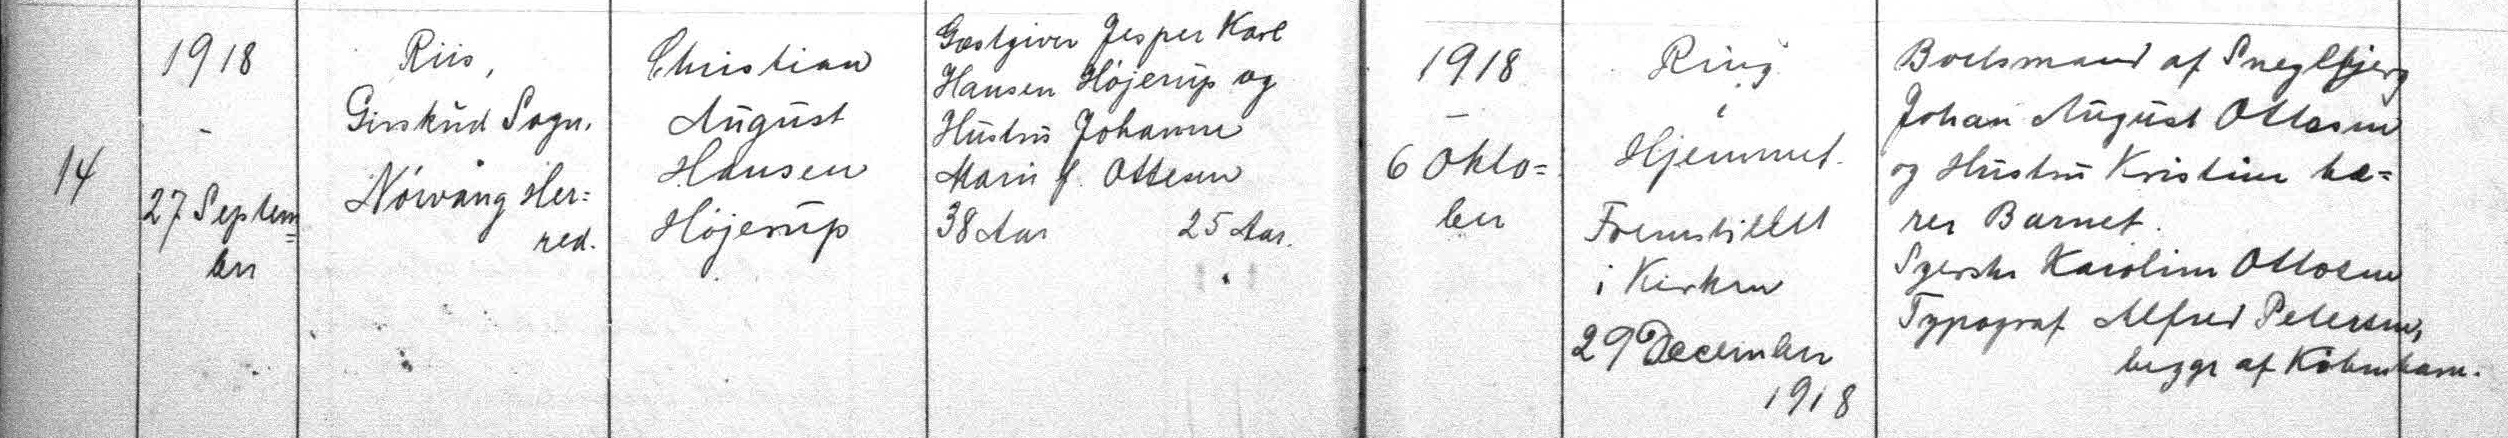 14
1918
-
27 Septem=
ber
Riis,
Givskud Sogn.
Nörvang Her=
red.
Christian
August
Hansen
Höjerup
Gæstgiver Jesper Karl
Hansen Höjerup og
Hustru Johanne
Marie f. Ottesen
38 Aar 25 Aar.
1918
-
6 Okto=
ber
Riis
i
Hjemmet.
Fremstillet
i Kirken
29 December
1918
Boelsmand af Sneglbjerg
Johan August Ottosen
og Hustru Kristine bæ=
rer Barnet.
Syerske Karoline Ottosen
Typograf Alfred Petersen,
begge af Köbenhavn.